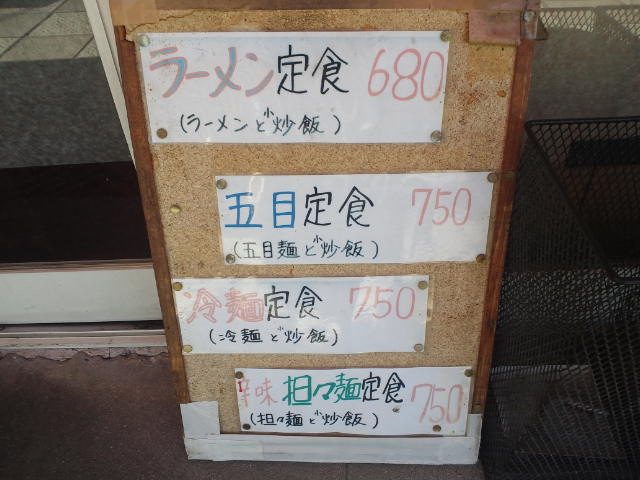 ラーメン定食 680
(ラーメンと小炒飯)
五目定食 750
(五目麺と小炒飯)
冷麺定食 750
(冷麺と小炒飯)
辛味担々麺定食 750
(担々麺と小炒飯)